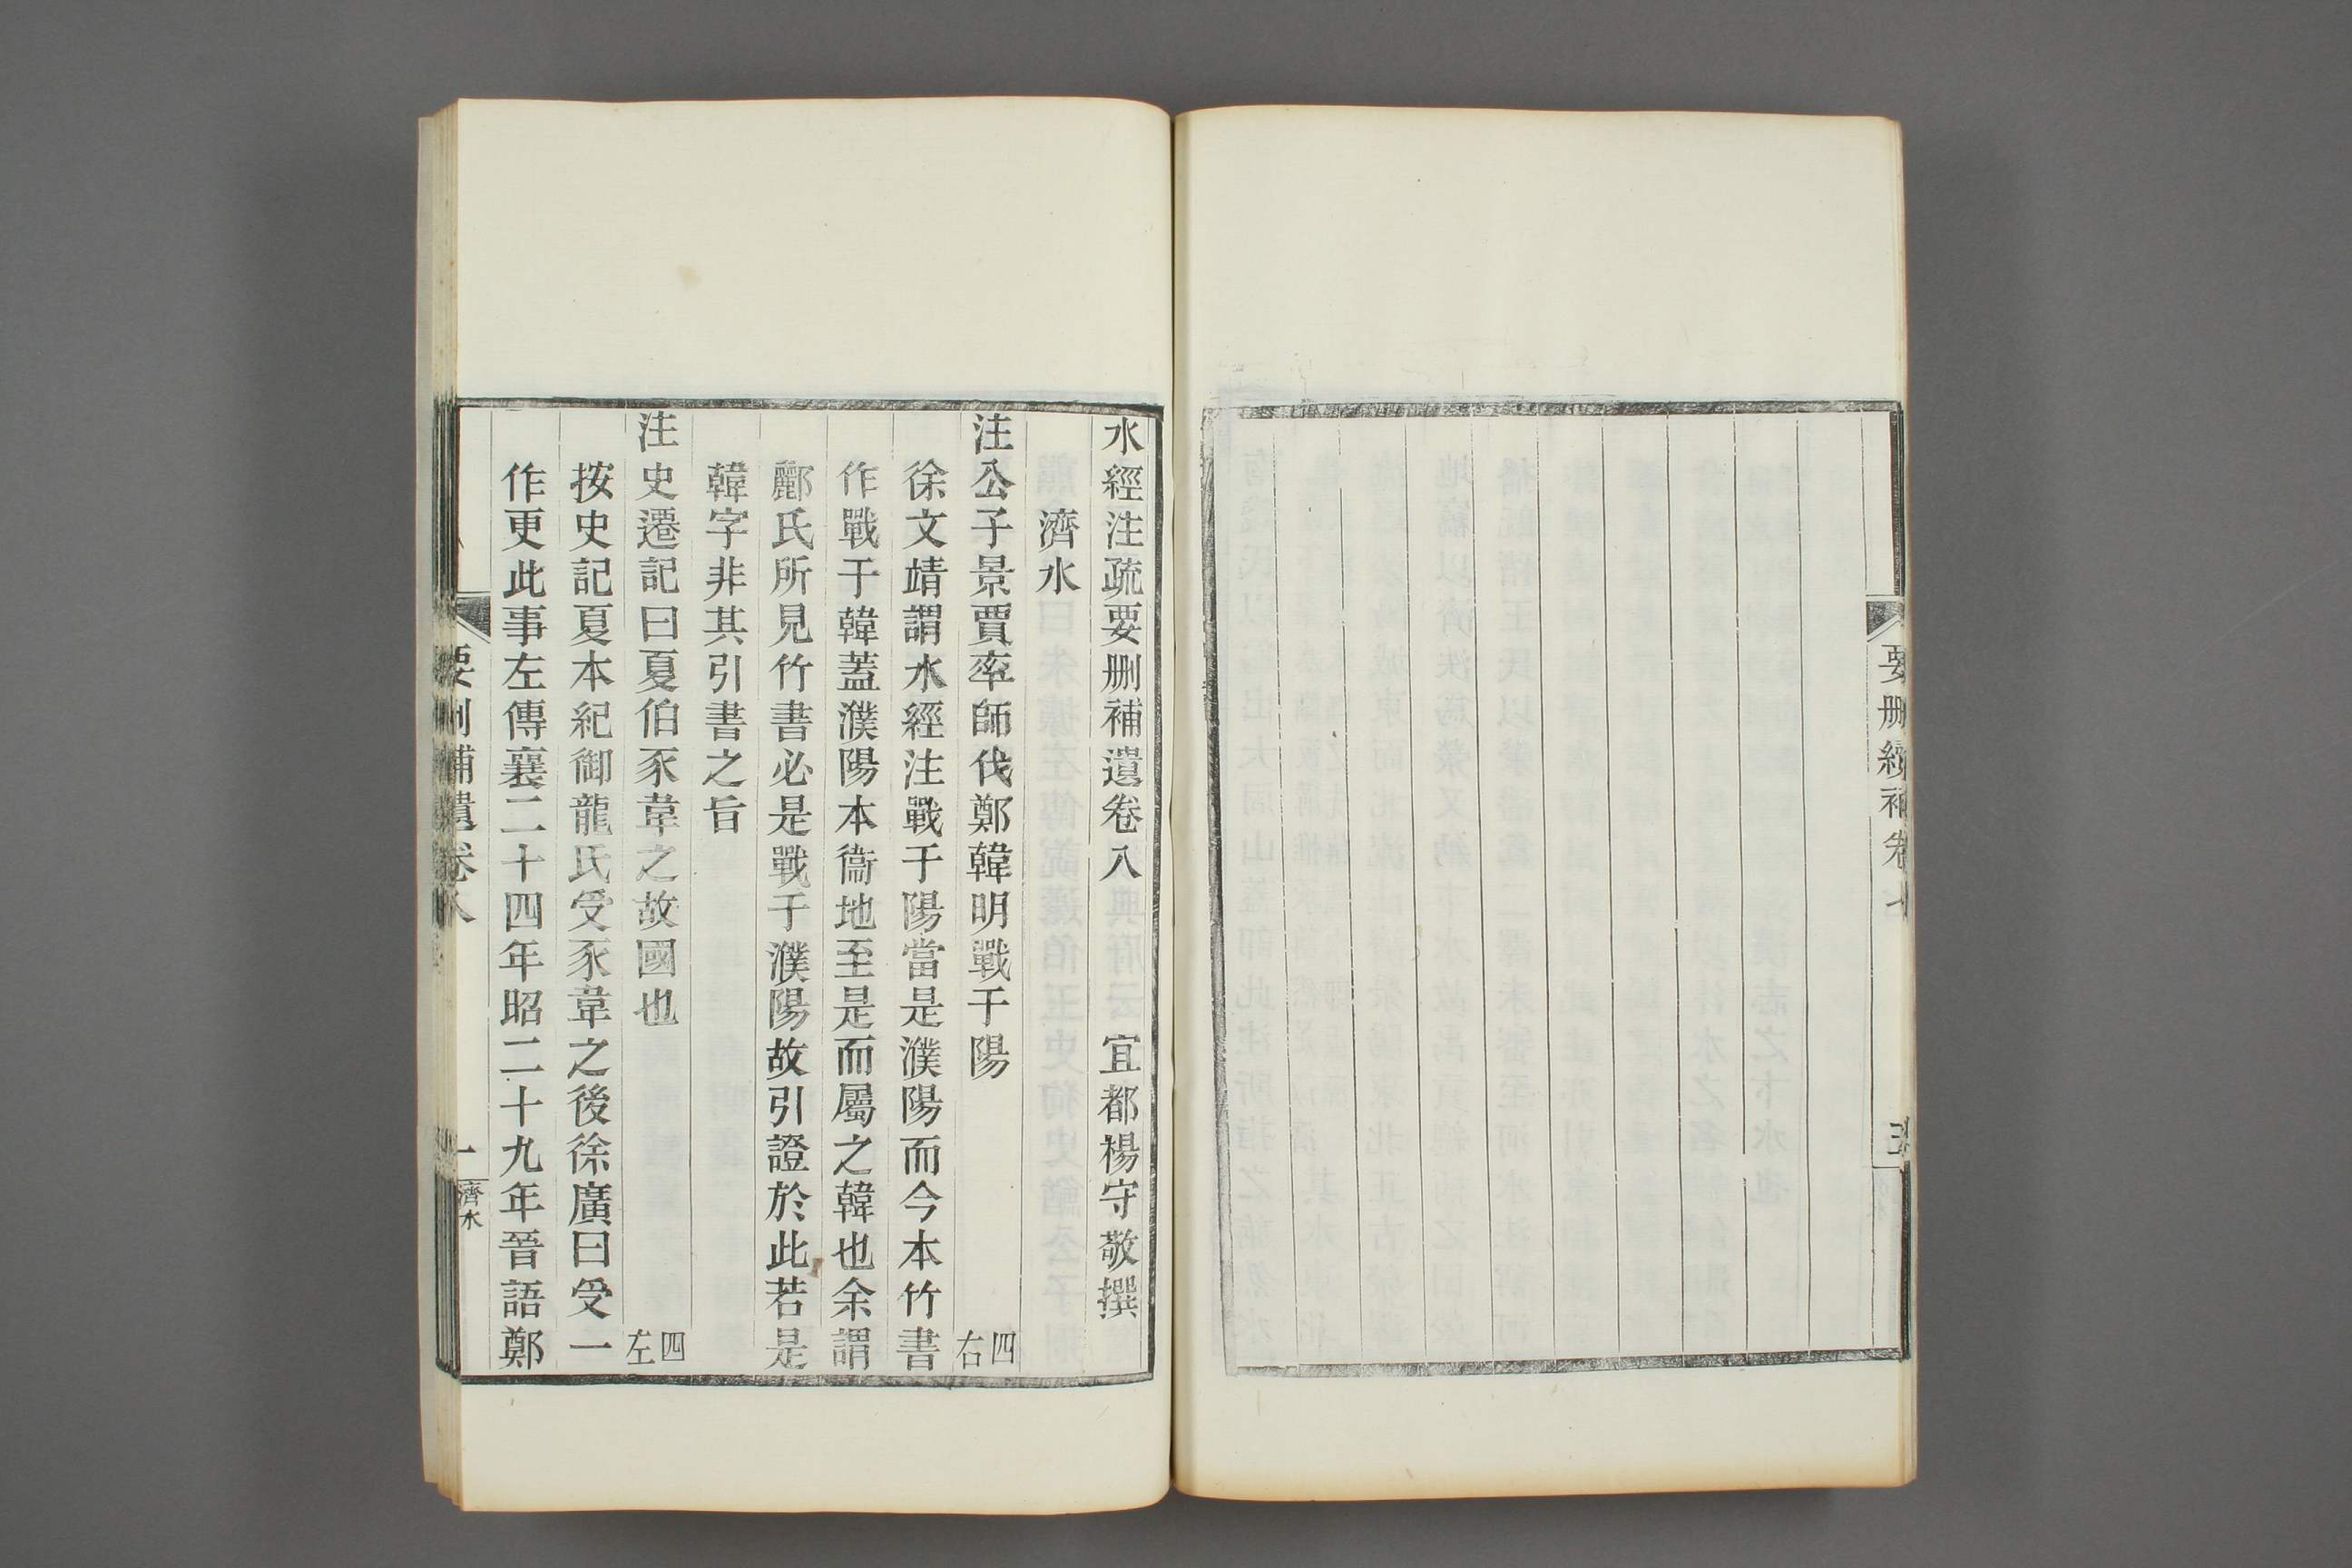 要删續補卷七
三
水經注疏要删補遺卷八　宜都楊守敬撰
濟水
注公子景賈率師伐鄭韓明戰于陽　四右
徐文靖謂水經注戰于陽當是濮陽而今本竹書
作戰于韓蓋濮陽本衞地至是而屬之韓也余謂
酈氏所見竹書必是戰于濮陽故引證於此若是
韓字非其引書之旨
注史遷記曰夏伯豕韋之故國也　四左
按史記夏本紀御龍氏受豕韋之後徐廣曰受一
作更此事左傳襄二十四年昭二十九年晉語鄭
要删補遺卷八
一
濟水